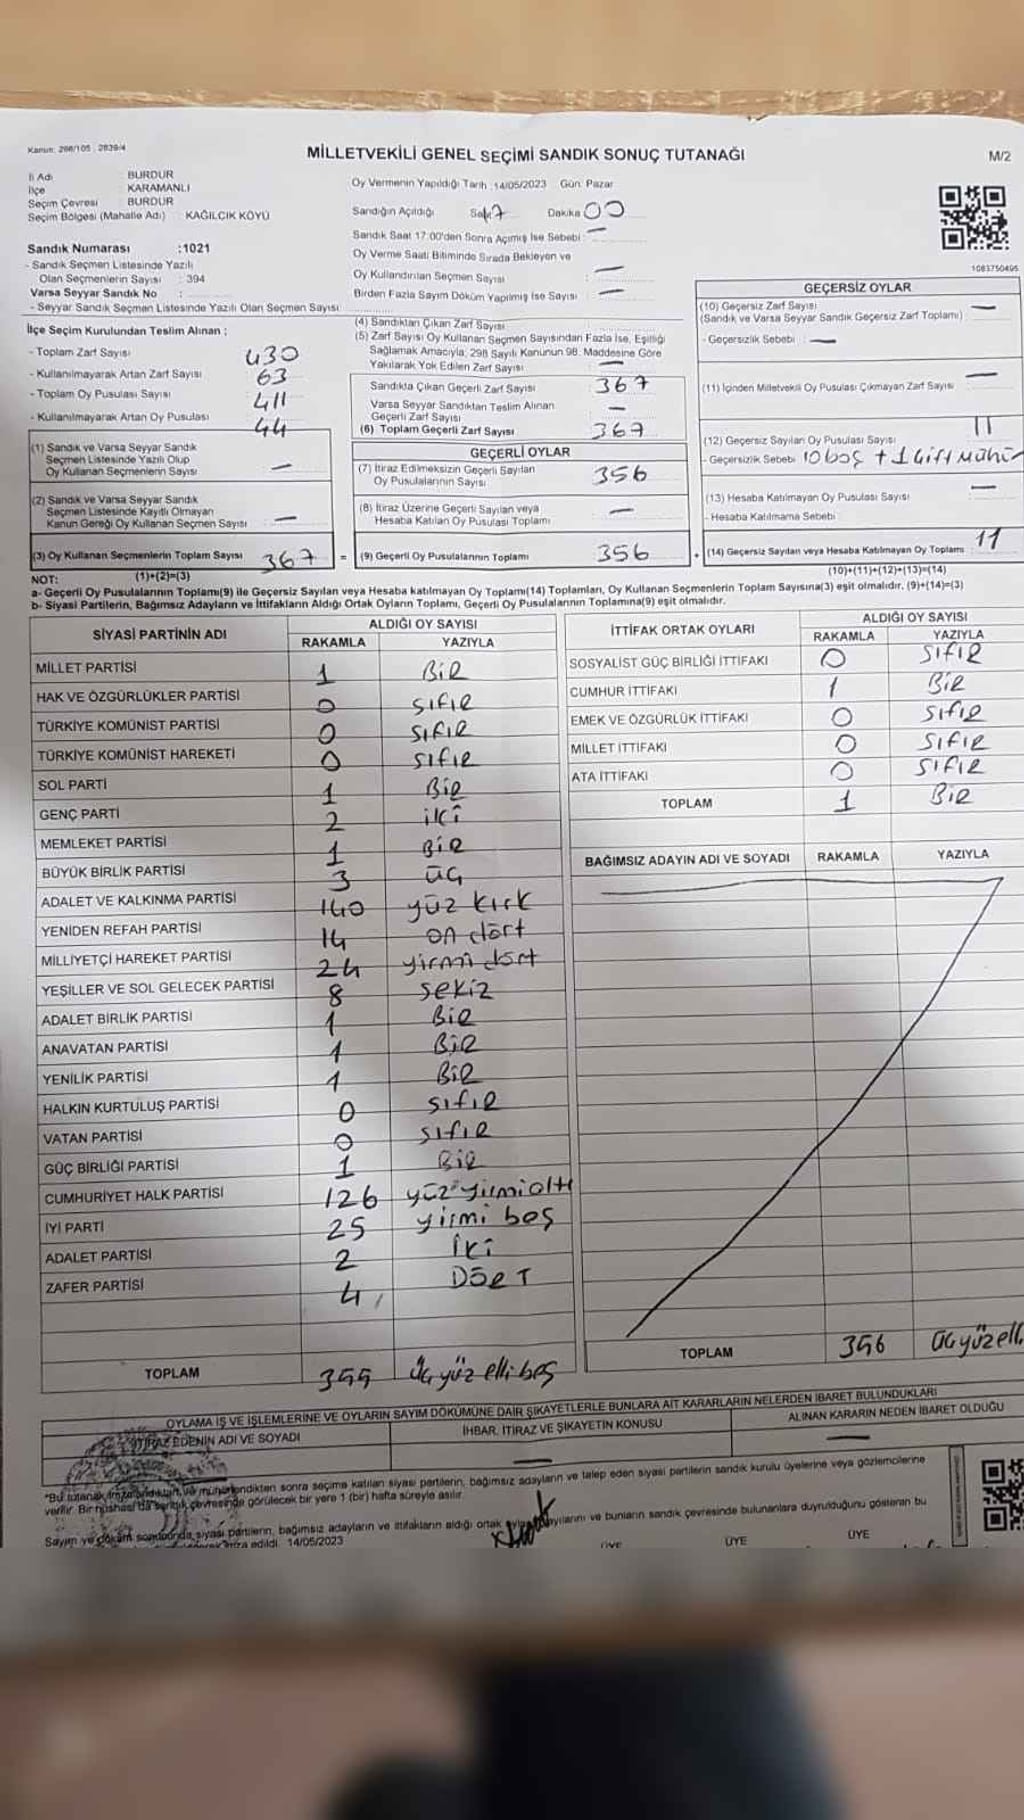 Kanun: 298/105 , 2839/4
MİLLETVEKİLİ GENEL SEÇİMİ SANDIK SONUÇ TUTANAĞI
M/2
İl Adı : BURDUR
İlçe : KARAMANLI
Seçim Çevresi : BURDUR
Seçim Bölgesi (Mahalle Adı) : KAĞILCIK KÖYÜ
Sandık Numarası :1021
- Sandık Seçmen Listesinde Yazılı
Olan Seçmenlerin Sayısı : 394
Varsa Seyyar Sandık No :
- Seyyar Sandık Seçmen Listesinde Yazılı Olan Seçmen Sayısı
Oy Vermenin Yapıldığı Tarih :14/05/2023 Gün: Pazar
Sandığın Açıldığı Saat 7 Dakika 00
Sandık Saat 17:00'den Sonra Açılmış İse Sebebi : —
Oy Verme Saati Bitiminde Sırada Bekleyen ve
Oy Kullandırılan Seçmen Sayısı : —
Birden Fazla Sayım Döküm Yapılmış İse Sayısı : —
1083750495
İlçe Seçim Kurulundan Teslim Alınan ;
- Toplam Zarf Sayısı 430
- Kullanılmayarak Artan Zarf Sayısı 63
- Toplam Oy Pusulası Sayısı 411
- Kullanılmayarak Artan Oy Pusulası 44
(1) Sandık ve Varsa Seyyar Sandık
Seçmen Listesinde Yazılı Olup
Oy Kullanan Seçmenlerin Sayısı —
(2) Sandık ve Varsa Seyyar Sandık
Seçmen Listesinde Kayıtlı Olmayan
Kanun Gereği Oy Kullanan Seçmen Sayısı —
(3) Oy Kullanan Seçmenlerin Toplam Sayısı 367 =
(1)+(2)=(3)
(4) Sandıktan Çıkan Zarf Sayısı
(5) Zarf Sayısı Oy Kullanan Seçmen Sayısından Fazla İse, Eşitliği
Sağlamak Amacıyla, 298 Sayılı Kanunun 98. Maddesine Göre
Yakılarak Yok Edilen Zarf Sayısı —
Sandıkta Çıkan Geçerli Zarf Sayısı 367
Varsa Seyyar Sandıktan Teslim Alınan
Geçerli Zarf Sayısı —
(6) Toplam Geçerli Zarf Sayısı 367
GEÇERLİ OYLAR
(7) İtiraz Edilmeksizin Geçerli Sayılan
Oy Pusulalarının Sayısı 356
(8) İtiraz Üzerine Geçerli Sayılan veya
Hesaba Katılan Oy Pusulası Toplamı —
(9) Geçerli Oy Pusulalarının Toplamı 356 +
GEÇERSİZ OYLAR
(10) Geçersiz Zarf Sayısı —
(Sandık ve Varsa Seyyar Sandık Geçersiz Zarf Toplamı)
- Geçersizlik Sebebi : —
(11) İçinden Milletvekili Oy Pusulası Çıkmayan Zarf Sayısı —
(12) Geçersiz Sayılan Oy Pusulası Sayısı 11
- Geçersizlik Sebebi 10 boş + 1 Çift Mühür
(13) Hesaba Katılmayan Oy Pusulası Sayısı —
- Hesaba Katılmama Sebebi
(14) Geçersiz Sayılan veya Hesaba Katılmayan Oy Toplamı 11
(10)+(11)+(12)+(13)=(14)
NOT:
a- Geçerli Oy Pusulalarının Toplamı(9) ile Geçersiz Sayılan veya Hesaba katılmayan Oy Toplamı(14) Toplamları, Oy Kullanan Seçmenlerin Toplam Sayısına(3) eşit olmalıdır. (9)+(14)=(3)
b- Siyasi Partilerin, Bağımsız Adayların ve İttifakların Aldığı Ortak Oyların Toplamı, Geçerli Oy Pusulalarının Toplamına(9) eşit olmalıdır.
SİYASİ PARTİNİN ADI
ALDIĞI OY SAYISI
RAKAMLA YAZIYLA
MİLLET PARTİSİ 1 BİR
HAK VE ÖZGÜRLÜKLER PARTİSİ 0 SIFIR
TÜRKİYE KOMÜNİST PARTİSİ 0 SIFIR
TÜRKİYE KOMÜNİST HAREKETİ 0 SIFIR
SOL PARTİ 1 BİR
GENÇ PARTİ 2 iki
MEMLEKET PARTİSİ 1 BİR
BÜYÜK BİRLİK PARTİSİ 3 üç
ADALET VE KALKINMA PARTİSİ 140 yüz kırk
YENİDEN REFAH PARTİSİ 14 on dört
MİLLİYETÇİ HAREKET PARTİSİ 24 yirmi dört
YEŞİLLER VE SOL GELECEK PARTİSİ 8 sekiz
ADALET BİRLİK PARTİSİ 1 BİR
ANAVATAN PARTİSİ 1 BİR
YENİLİK PARTİSİ 1 BİR
HALKIN KURTULUŞ PARTİSİ 0 SIFIR
VATAN PARTİSİ 0 SIFIR
GÜÇ BİRLİĞİ PARTİSİ 1 BİR
CUMHURİYET HALK PARTİSİ 126 yüz yirmi altı
İYİ PARTİ 25 yirmi beş
ADALET PARTİSİ 2 İki
ZAFER PARTİSİ 4 DÖRT
TOPLAM 355 Üç yüz elli beş
İTTİFAK ORTAK OYLARI
ALDIĞI OY SAYISI
RAKAMLA YAZIYLA
SOSYALİST GÜÇ BİRLİĞİ İTTİFAKI 0 SIFIR
CUMHUR İTTİFAKI 1 BİR
EMEK VE ÖZGÜRLÜK İTTİFAKI 0 SIFIR
MİLLET İTTİFAKI 0 SIFIR
ATA İTTİFAKI 0 SIFIR
TOPLAM 1 BİR
BAĞIMSIZ ADAYIN ADI VE SOYADI RAKAMLA YAZIYLA
TOPLAM 356 Üç yüz elli
OYLAMA İŞ VE İŞLEMLERİNE VE OYLARIN SAYIM DÖKÜMÜNE DAİR ŞİKAYETLERLE BUNLARA AİT KARARLARIN NELERDEN İBARET BULUNDUKLARI
İTİRAZ EDENİN ADI VE SOYADI İHBAR, İTİRAZ VE ŞİKAYETİN KONUSU ALINAN KARARIN NEDEN İBARET OLDUĞU
— —
*Bu tutanak imzalandıktan ve mühürlendikten sonra seçime katılan siyasi partilerin, bağımsız adayların ve talep eden siyasi partilerin sandık kurulu üyelerine veya gözlemcilerine
verilir. Bir nüshası da sandık çevresinde görülecek bir yere 1 (bir) hafta süreyle asılır.
Sayım ve döküm sonucunda, siyasi partilerin, bağımsız adayların ve ittifakların aldığı ortak oyların sayılarını ve bunların sandık çevresinde bulunanlara duyurulduğunu gösteren bu
imza edildi. 14/05/2023
ÜYE ÜYE ÜYE